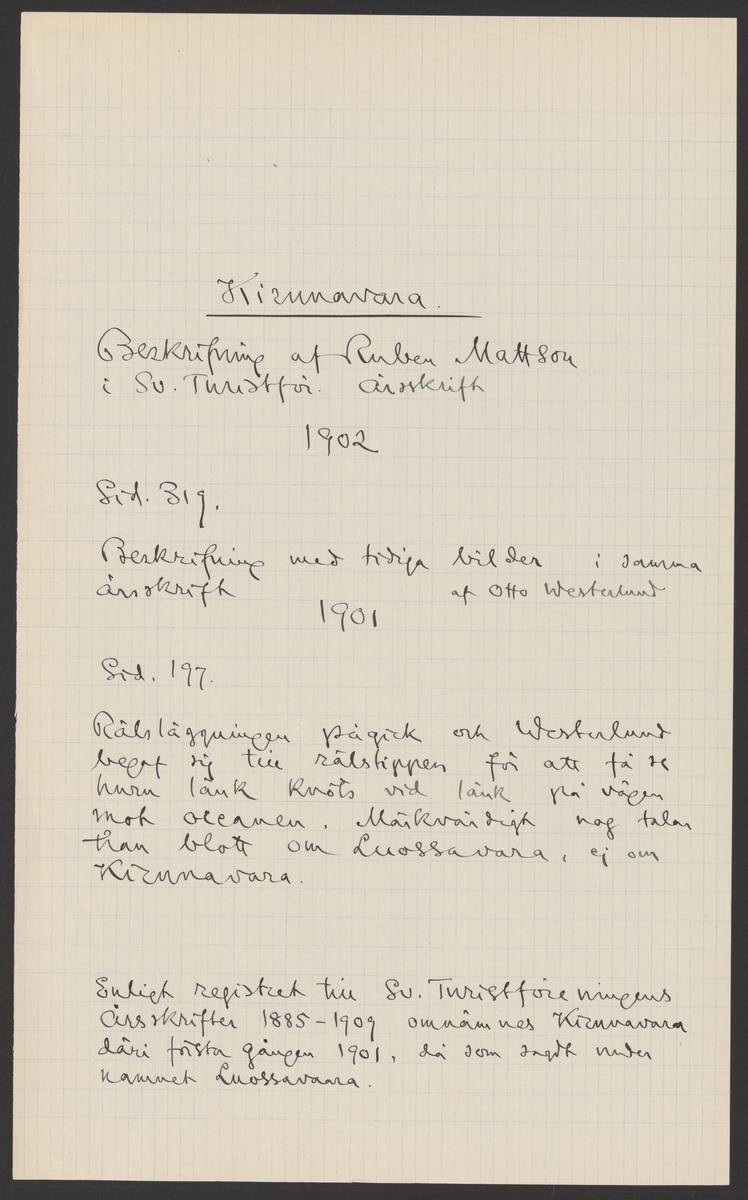 Kirunavara.
Beskrifning af Ruben Mattson
i Sv. Turistför. årsskrift
1902
Sid. 319.
Beskrifning med tidiga bilder i samma
årsskrift af Otto Westerlund
1901
Sid. 197.
Rälsläggningen pågick och Westerlund
begaf sig till rälstippen för att få se
huru länk knöts vid länk på vägen
mot oceanen. Märkvärdigt nog talar
han blott om Luossavara, ej om
Kirunavara.
Enligt registret till Sv. Turistföreningens
Årsskrifter 1885-1909 omnämnes Kirunavara
däri första gången 1901, då som sagdt under
namnet Luossavaara.